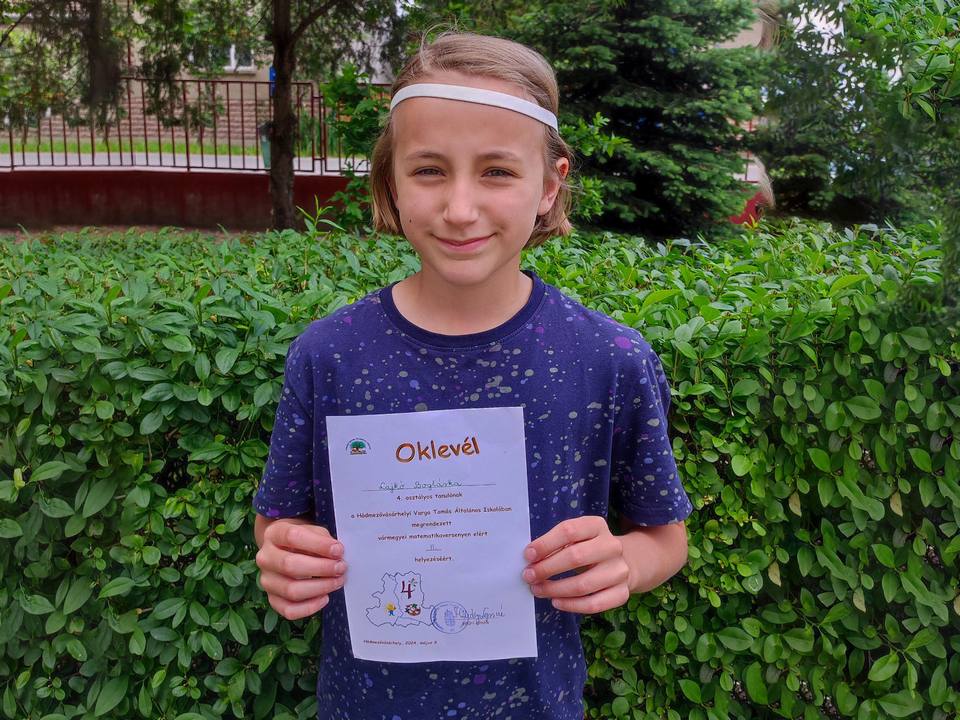 Oklevél
Lajkó Boglárka
4. osztályos tanulónak
a Hódmezővásárhelyi Varga Tamás Általános Iskolában
megrendezett
vármegyei matematikaversenyen elért
II.
helyezéséért.
4
Hódmezővásárhely, 2024. május 9.